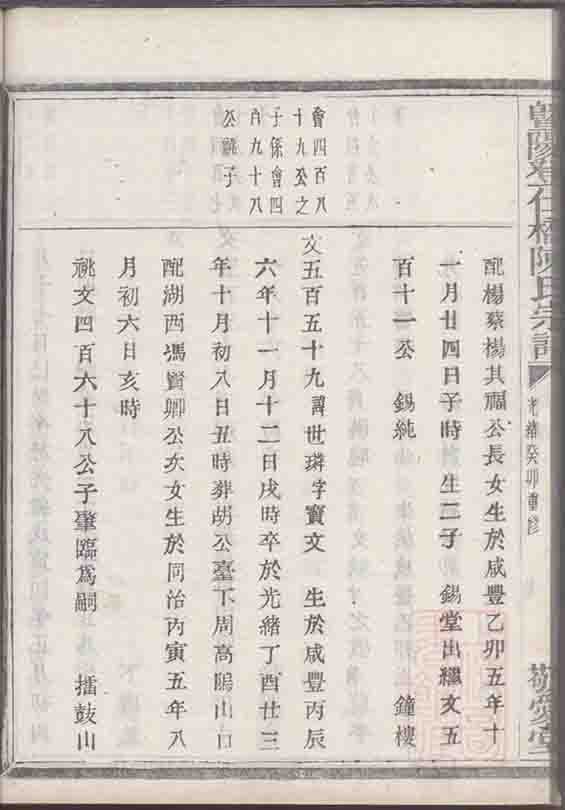 暨陽登仕橋陳氏宗譜
光緒癸卯重修
敬愛堂
配楊蔡楊其福公長女生於咸豐乙卯五年十
一月廿四日子時 生二子 錫堂出繼文五
百十一公 錫純 鐘樓
會四百八
十九公之
子係會四
百九十八
公繼子
文五百五十九諱世璘字寳文 生於咸豐丙辰
六年十一月十二日戌時卒於光緒丁酉廿三
年十月初八日丑時葬胡公臺下周高塢山口
配湖西馮賢卿公次女生於同治丙寅五年八
月初六日亥時
祧文四百六十八公子肇臨爲嗣 擂鼓山